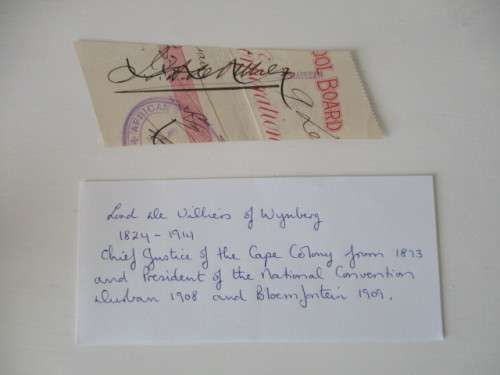 OOL BOARD
AFRICAN
Lord de Villiers of Wynberg
1824 - 1914
Chief Justice of the Cape Colony from 1873
and President of the National Convention
Durban 1908 and Bloemfontein 1909.